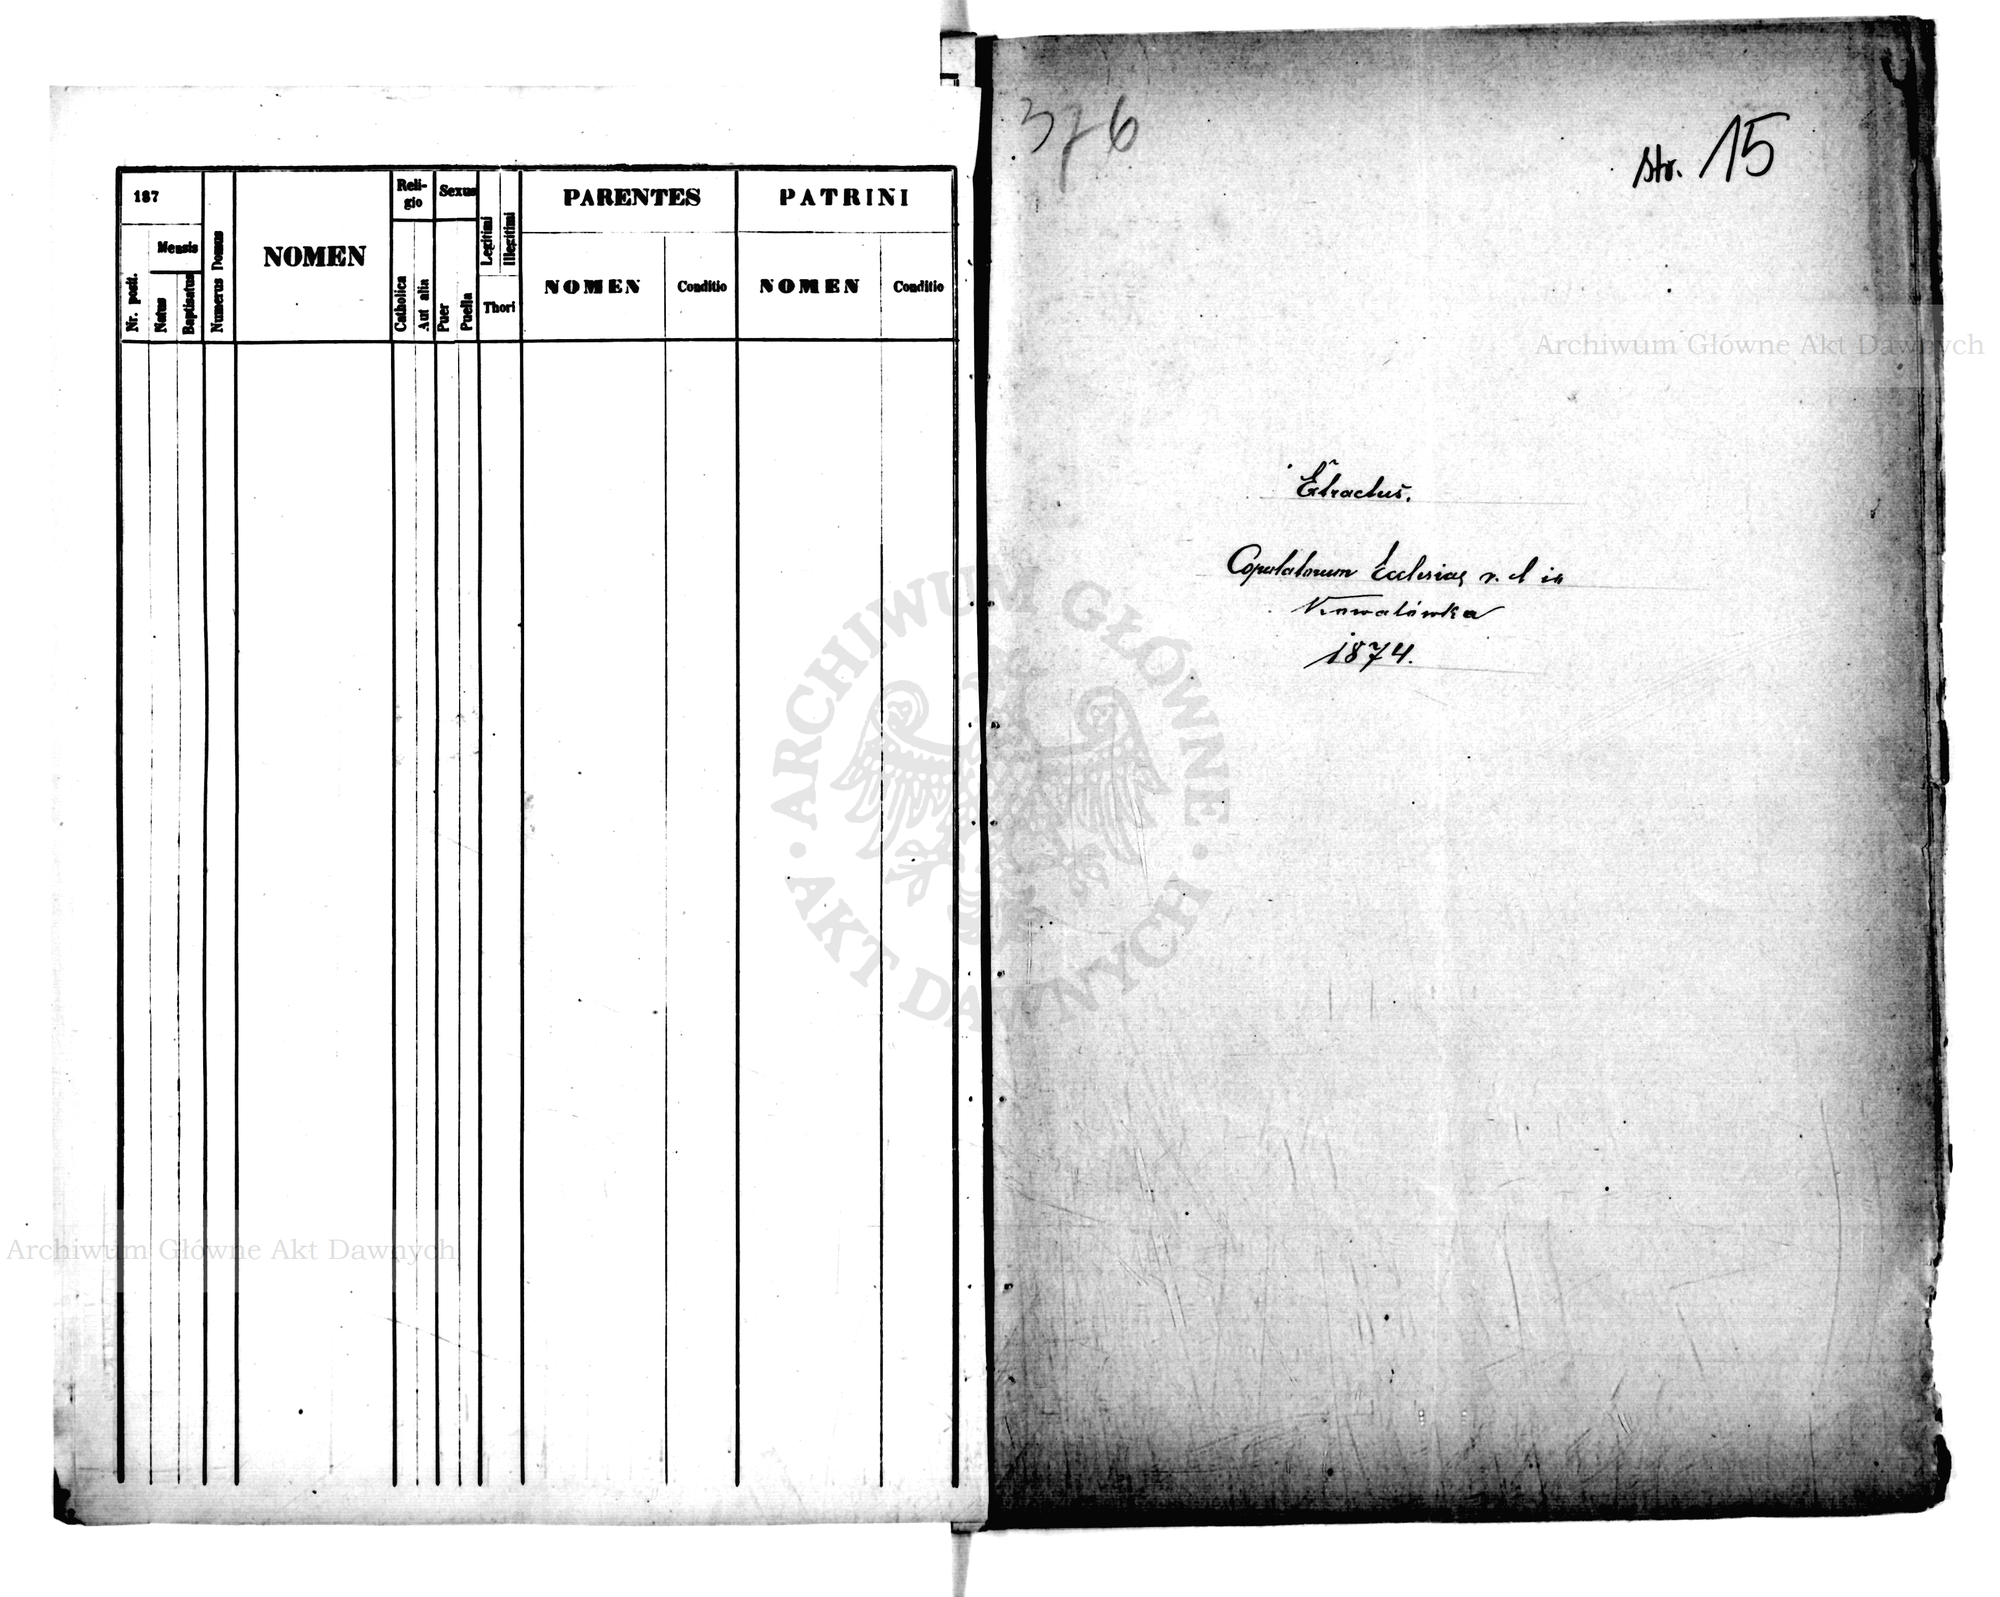 187
Mensis
Nr. posit.
Natus
Baptisatus
Numerus Domus
NOMEN
Reli-
gio
Catholica
Aut alia
Sexus
Puer
Puella
Legitimi
Illegitimi
Thori
PARENTES
NOMEN
Conditio
PATRINI
NOMEN
Conditio
376
str. 15
Extractus.
Copulatorum Ecclesiae r. l in
Kowalówka
1874.
Archiwum Główne Akt Dawnych
ARCHIWUM GŁÓWNE
AKT DAWNYCH
Archiwum Główne Akt Dawnych